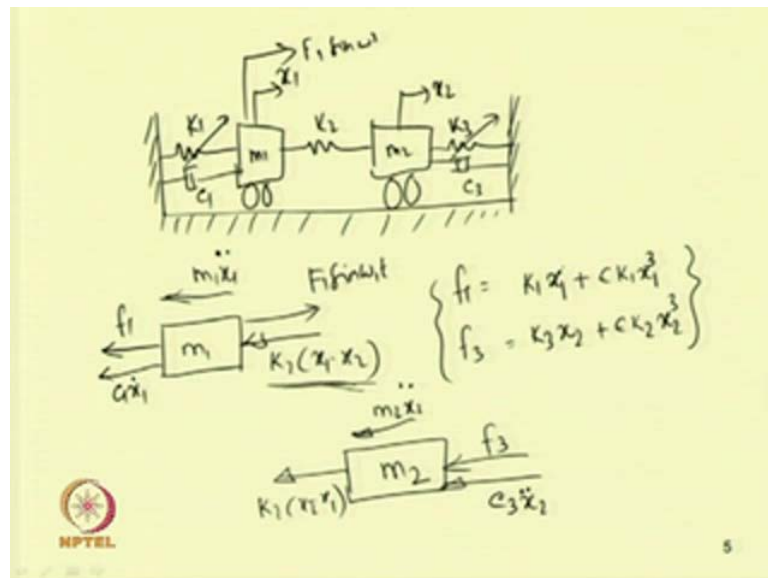 F₁ sin ωt
x₁
x₂
K₁
K₂
K₃
m₁
m₂
C₁
C₃
m₁ẍ₁
F₁ sin ω₁t
f₁
m₁
C₁ẋ₁
K₂(x₁-x₂)
f₁ = K₁x₁ + ϵK₁x₁³
f₃ = K₃x₂ + ϵK₂x₂³
m₂ẍ₂
m₂
f₃
K₂(x₂ x₁)
C₃ẍ₂
NPTEL
5